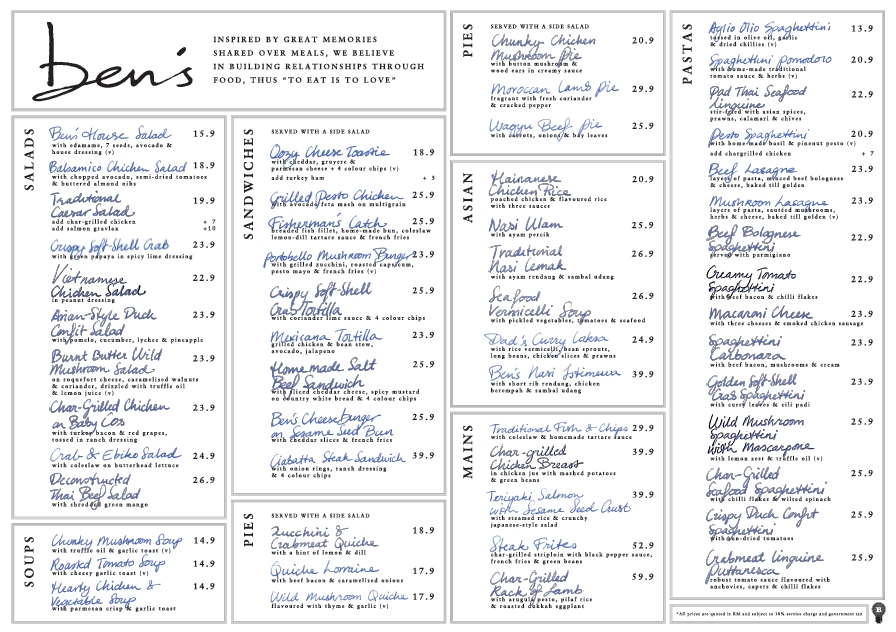 ben's
INSPIRED BY GREAT MEMORIES
SHARED OVER MEALS, WE BELIEVE
IN BUILDING RELATIONSHIPS THROUGH
FOOD, THUS "TO EAT IS TO LOVE"
SALADS
Ben's House Salad 15.9
with edamame, 7 seeds, avocado &
house dressing (v)
Balsamico Chicken Salad 18.9
with chopped avocado, semi-dried tomatoes
& buttered almond nibs
Traditional 19.9
Caesar Salad
add char-grilled chicken + 7
add salmon gravlax +10
Crispy Soft-Shell Crab 23.9
with green papaya in spicy lime dressing
Vietnamese 22.9
Chicken Salad
in peanut dressing
Asian-Style Duck 23.9
Confit Salad
with pomelo, cucumber, lychee & pineapple
Burnt Butter Wild 23.9
Mushroom Salad
on roquefort cheese, caramelised walnuts
& coriander, drizzled with truffle oil
& lemon juice (v)
Char-Grilled Chicken 23.9
on Baby Cos
with turkey bacon & red grapes,
tossed in ranch dressing
Crab & Ebiko Salad 24.9
with coleslaw on butterhead lettuce
Deconstructed 26.9
Thai Beef Salad
with shredded green mango
SOUPS
Chunky Mushroom Soup 14.9
with truffle oil & garlic toast (v)
Roasted Tomato Soup 14.9
with cheesy garlic toast (v)
Hearty Chicken & 14.9
Vegetable Soup
with parmesan crisp & garlic toast
SANDWICHES
SERVED WITH A SIDE SALAD
Oozy Cheese Toastie 18.9
with cheddar, gruyere &
parmesan cheese + 4 colour chips (v)
add turkey ham + 3
Grilled Pesto Chicken 25.9
with avocado feta mash on multigrain
Fisherman's Catch 25.9
breaded fish fillet, home-made bun, coleslaw
lemon-dill tartare sauce & french fries
Portobello Mushroom Burger 23.9
with grilled zucchini, roasted capsicum,
pesto mayo & french fries (v)
Crispy Soft-Shell 25.9
Crab Tortilla
with coriander lime sauce & 4 colour chips
Mexicana Tortilla 23.9
grilled chicken & bean stew,
avocado, jalapeno
Home made Salt 25.9
Beef Sandwich
with sliced cheddar cheese, spicy mustard
on country white bread & 4 colour chips
Ben's Cheeseburger 25.9
on Sesame Seed Bun
with cheddar slices & french fries
Ciabatta Steak Sandwich 39.9
with onion rings, ranch dressing
& 4 colour chips
PIES
SERVED WITH A SIDE SALAD
Zucchini & 18.9
Crabmeat Quiche
with a hint of lemon & dill
Quiche Lorraine 17.9
with beef bacon & caramelised onions
Wild Mushroom Quiche 17.9
flavoured with thyme & garlic (v)
PIES
SERVED WITH A SIDE SALAD
Chunky Chicken 20.9
Mushroom Pie
with button mushroom &
wood ears in creamy sauce
Moroccan Lamb Pie 29.9
fragrant with fresh coriander
& cracked pepper
Wagyu Beef Pie 25.9
with carrots, onions & bay leaves
ASIAN
Hainanese 20.9
Chicken Rice
poached chicken & flavoured rice
with three sauces
Nasi Ulam 25.9
with ayam percik
Traditional 26.9
Nasi Lemak
with ayam rendang & sambal udang
Seafood 26.9
Vermicelli Soup
with pickled vegetables, tomatoes & seafood
Dad's Curry Laksa 24.9
with rice vermicelli, bean sprouts,
long beans, chicken slices & prawns
Ben's Nasi Istimewa 39.9
with short rib rendang, chicken
berempah & sambal udang
MAINS
Traditional Fish & Chips 29.9
with coleslaw & homemade tartare sauce
Char-grilled 39.9
Chicken Breast
in chicken jus with mashed potatoes
& green beans
Teriyaki Salmon 39.9
with Sesame Seed Crust
with steamed rice & crunchy
japanese-style salad
Steak Frites 52.9
char-grilled striploin with black pepper sauce,
french fries & green beans
Char-Grilled 59.9
Rack of Lamb
with arugula pesto, pilaf rice
& roasted dukkah eggplant
PASTAS
Aglio Olio Spaghettini 13.9
tossed in olive oil, garlic
& dried chillies (v)
Spaghettini Pomodoro 20.9
with home-made traditional
tomato sauce & herbs (v)
Pad Thai Seafood 22.9
Linguine
stir-fried with asian spices,
prawns, calamari & chives
Pesto Spaghettini 20.9
with home-made basil & pinenut pesto (v)
add chargrilled chicken + 7
Beef Lasagne 23.9
layers of pasta, minced beef bolognese
& cheese, baked till golden
Mushroom Lasagne 23.9
layers of pasta, sautéed mushrooms,
herbs & cheese, baked till golden (v)
Beef Bolognese 22.9
Spaghettini
served with parmigiano
Creamy Tomato 22.9
Spaghettini
with beef bacon & chilli flakes
Macaroni Cheese 23.9
with three cheeses & smoked chicken sausage
Spaghettini 23.9
Carbonara
with beef bacon, mushrooms & cream
Golden Soft-Shell 23.9
Crab Spaghettini
with curry leaves & cili padi
Wild Mushroom 25.9
Spaghettini
with Mascarpone
with lemon zest & truffle oil (v)
Char-Grilled 25.9
Seafood Spaghettini
with chilli flakes & wilted spinach
Crispy Duck Confit 25.9
Spaghettini
with sun-dried tomatoes
Crabmeat Linguine 25.9
Puttanesca
robust tomato sauce flavoured with
anchovies, capers & chilli flakes
*All prices are quoted in RM and subject to 10% service charge and government tax
B